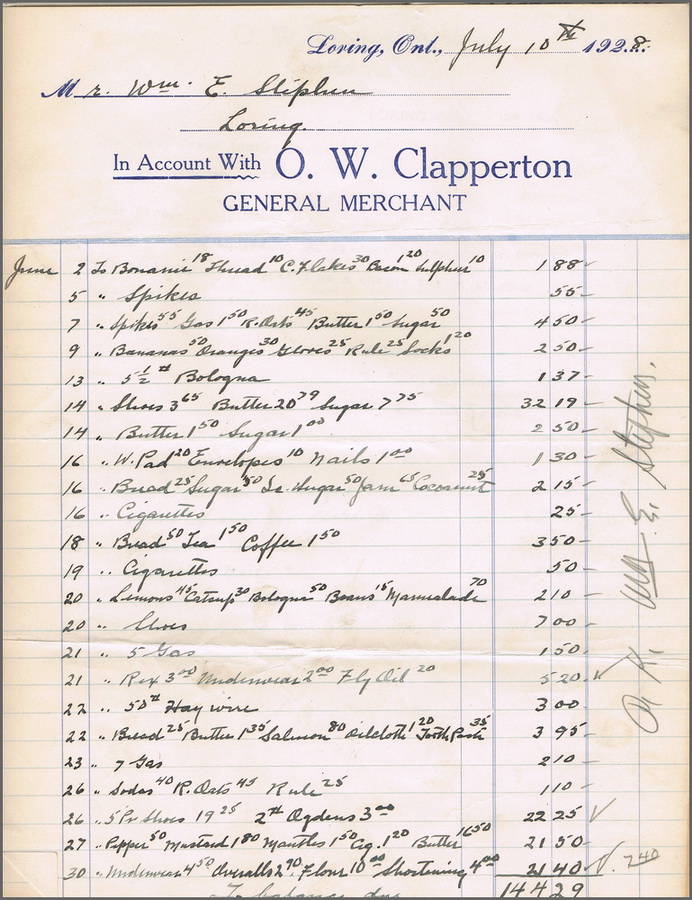 Loring, Ont., July 10th 1928.
Mr. Wm. E. Stephen
Loring.
In Account With O. W. Clapperton
GENERAL MERCHANT
June 2 To Bonamie 18 Thread 10 C. Flakes 30 Bacon 1 20 Sulphur 10 1 88
5 " Spikes 55
7 " Spikes 55 Gas 1 50 R. Oats 45 Butter 1 50 Sugar 50 4 50
9 " Bananas 50 Oranges 30 Gloves 25 Rule 25 Socks 1 20 2 50
13 " 5 1/2 # Bologna 1 37
14 " Shoes 3 65 Butter 20 79 Sugar 7 75 32 19
14 " Butter 1 50 Sugar 1 00 2 50
16 " W. Pad 20 Envelopes 10 Nails 1 00 1 30
16 " Bread 25 Sugar 50 Sugar 50 Jam 65 Cocoanut 25 2 15
16 " Cigarettes 25
18 " Bread 50 Tea 1 50 Coffee 1 50 3 50
19 " Cigarettes 50
20 " Lemons 45 Catsup 30 Bologna 50 Beans 15 Marmalade 70 2 10
20 " Shoes 7 00
21 " 5 Gas 1 50
21 " Rex 3 00 Underwear 2 00 Fly Oil 20 5 20
22 " 50 # Hay wire 3 00
22 " Bread 25 Butter 1 35 Salmon 80 Oilcloth 1 20 Tooth Paste 35 3 95
23 " 7 Gas 2 10
26 " Sodas 40 R. Oats 45 Rule 25 1 10
26 " 5 Pr Shoes 19 25 2 # Ogdens 3 00 22 25
27 " Pepper 50 Mustard 1 80 Mantles 1 50 Cig. 1 20 Butter 16 50 21 50
30 " Underwear 4 50 Overalls 2 90 Flour 10 00 Shortening 4 00 21 40 7 40
To balance due 144 29
O. K. Wm E. Stephen.